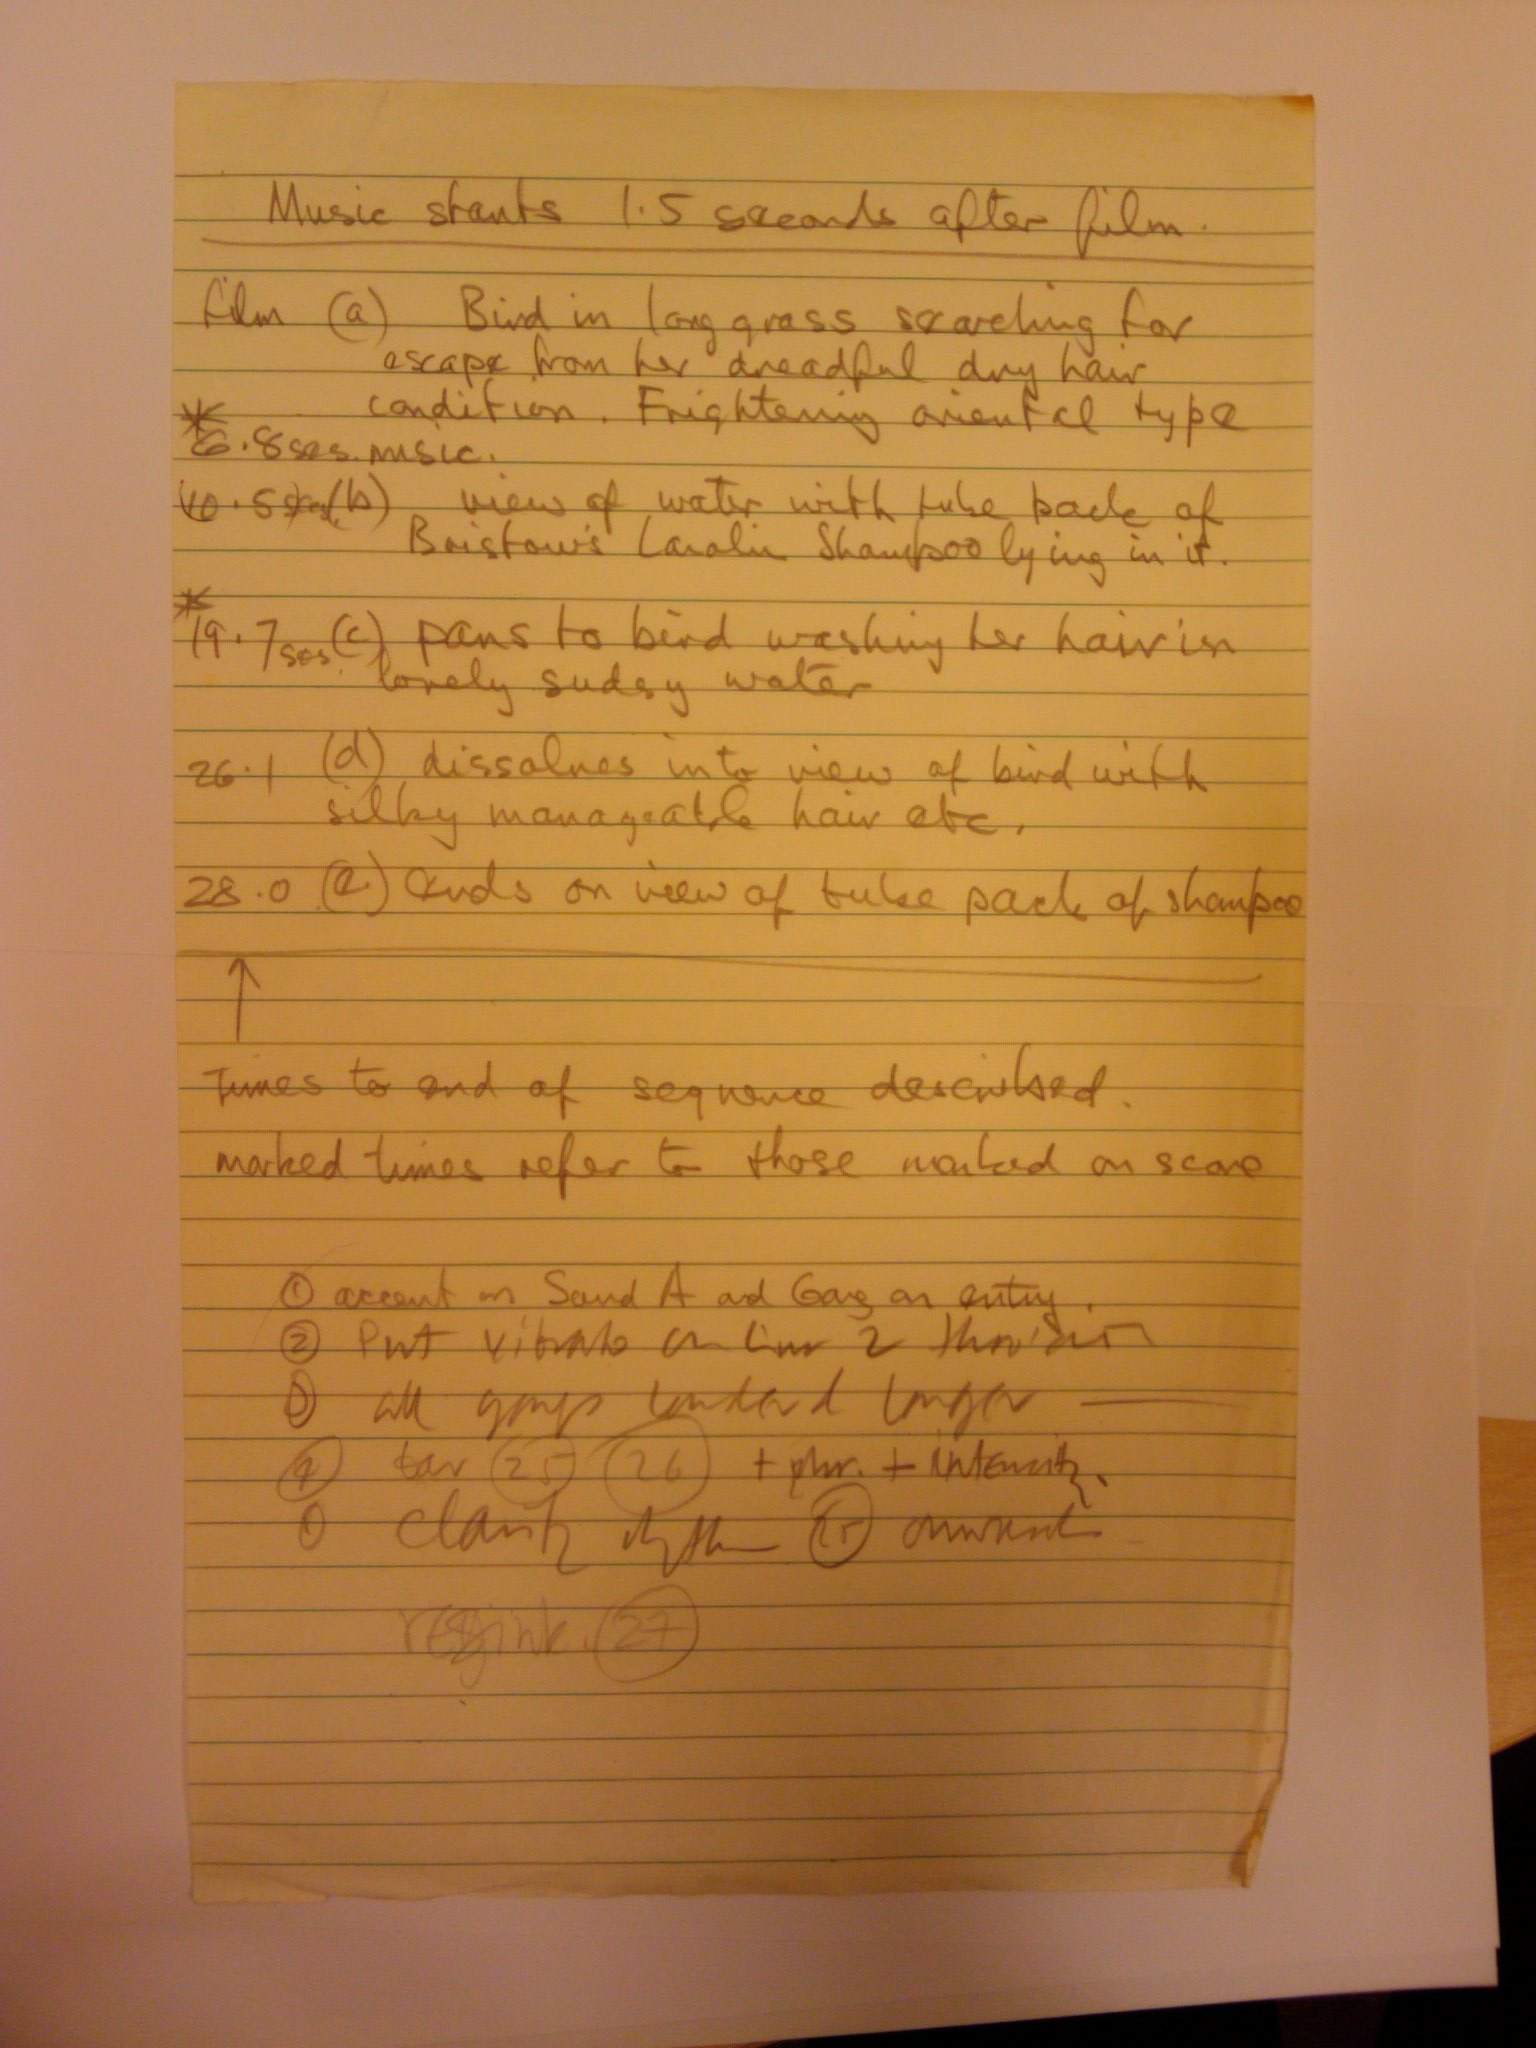 Music starts 1.5 seconds after film.
film (a) Bird in long grass searching for
escape from her dreadful dry hair
condition. Frightening oriental type
* 6.8 secs. music.
10.5 secs (b) view of water with tube pack of
Bristow's Lanolin Shampoo lying in it.
*
19.7 secs (c) pans to bird washing her hair in
lovely sudsy water
26.1 (d) dissolves into view of bird with
silky manageable hair etc.
28.0 (e) ends on view of tube pack of shampoo
↑
Times to end of sequence described.
marked times refer to those marked on score
① accent on Sound A and Gong on entry.
② Put vibrato on line 2
all gongs louder longer
④ bar 25 26 + + intensity.
clarity 25 onwards
27